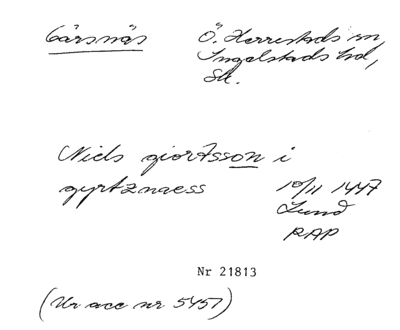 Gärsnäs
Ö. Herrestads sn,
Ingelstads hd,
Sk.
Niels giortsson i
gyrtznaess
10/11 1447
Lund
RAP
Nr 21813
(Ur acc nr 5457)